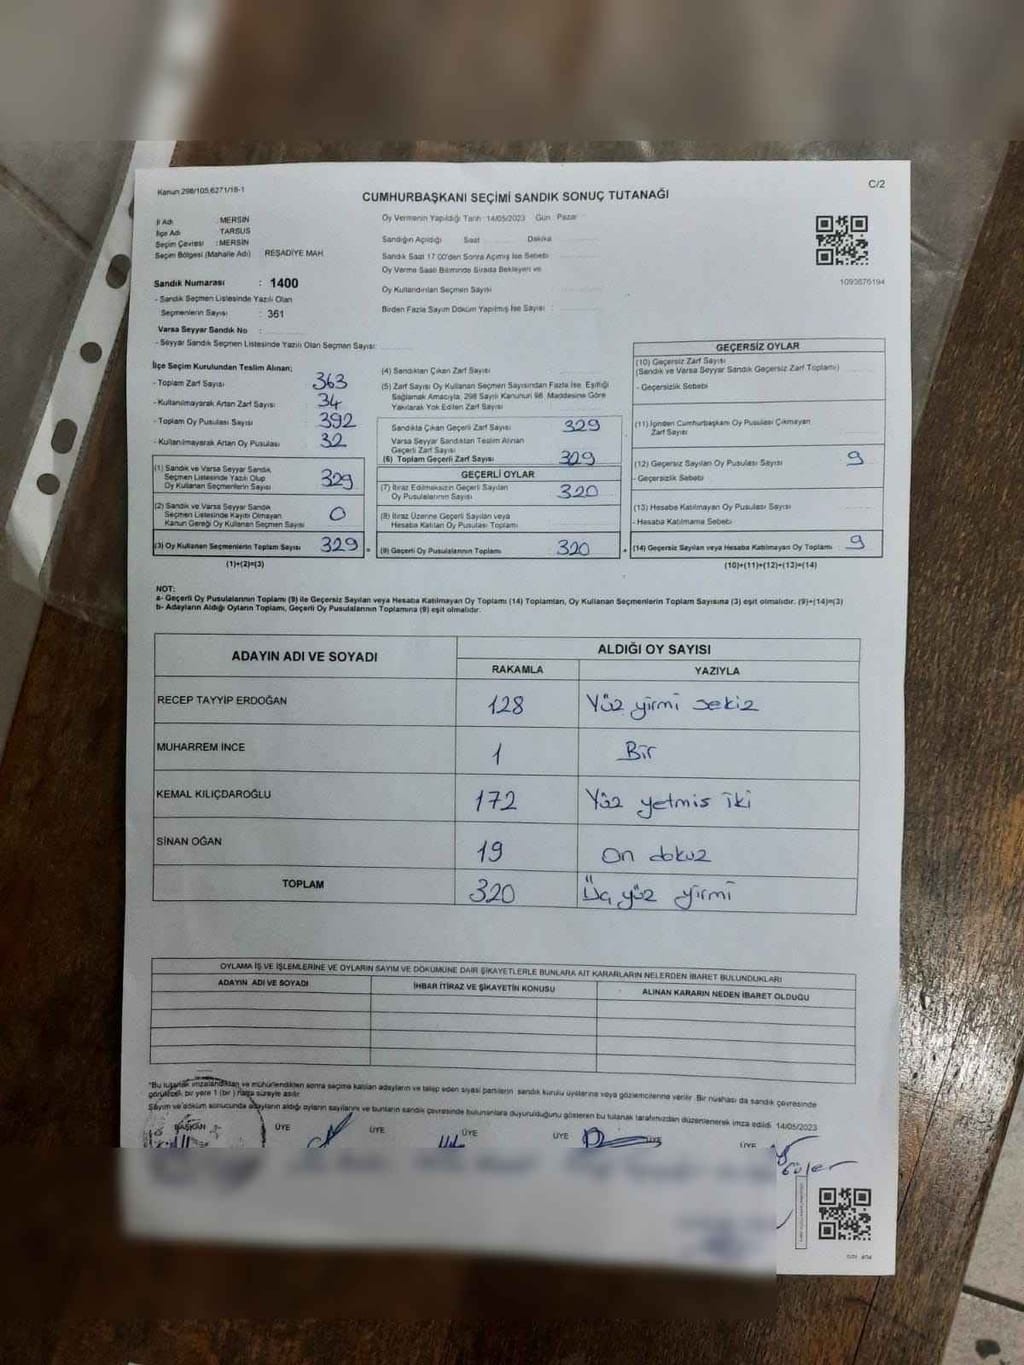 Kanun 298/105,6271/18-1
C/2
CUMHURBAŞKANI SEÇİMİ SANDIK SONUÇ TUTANAĞI
İl Adı : MERSİN
İlçe Adı TARSUS
Seçim Çevresi : MERSİN
Seçim Bölgesi (Mahalle Adı) REŞADİYE MAH.
Sandık Numarası : 1400
- Sandık Seçmen Listesinde Yazılı Olan
Seçmenlerin Sayısı : 361
Varsa Seyyar Sandık No :
- Seyyar Sandık Seçmen Listesinde Yazılı Olan Seçmen Sayısı:
Oy Vermenin Yapıldığı Tarih : 14/05/2023 Gün : Pazar
Sandığın Açıldığı Saat Dakika
Sandık Saat 17.00'den Sonra Açılmış İse Sebebi
Oy Verme Saati Bitiminde Sırada Bekleyen ve
Oy Kullandırılan Seçmen Sayısı
Birden Fazla Sayım Döküm Yapılmış İse Sayısı :
1093676194
İlçe Seçim Kurulundan Teslim Alınan;
- Toplam Zarf Sayısı 363
- Kullanılmayarak Artan Zarf Sayısı 34
- Toplam Oy Pusulası Sayısı 392
- Kullanılmayarak Artan Oy Pusulası 32
(1) Sandık ve Varsa Seyyar Sandık
Seçmen Listesinde Yazılı Olup
Oy Kullanan Seçmenlerin Sayısı 329
(2) Sandık ve Varsa Seyyar Sandık
Seçmen Listesinde Kaydı Olmayan
Kanun Gereği Oy Kullanan Seçmen Sayısı 0
(3) Oy Kullanan Seçmenlerin Toplam Sayısı 329 =
(1)+(2)=(3)
(4) Sandıktan Çıkan Zarf Sayısı
(5) Zarf Sayısı Oy Kullanan Seçmen Sayısından Fazla İse, Eşitliği
Sağlamak Amacıyla, 298 Sayılı Kanunun 98. Maddesine Göre
Yakılarak Yok Edilen Zarf Sayısı
Sandıkta Çıkan Geçerli Zarf Sayısı 329
Varsa Seyyar Sandıktan Teslim Alınan
Geçerli Zarf Sayısı
(6) Toplam Geçerli Zarf Sayısı 329
GEÇERLİ OYLAR
(7) İtiraz Edilmeksizin Geçerli Sayılan
Oy Pusulalarının Sayısı 320
(8) İtiraz Üzerine Geçerli Sayılan veya
Hesaba Katılan Oy Pusulası Toplamı
(9) Geçerli Oy Pusulalarının Toplamı 320 +
GEÇERSİZ OYLAR
(10) Geçersiz Zarf Sayısı
(Sandık ve Varsa Seyyar Sandık Geçersiz Zarf Toplamı)
- Geçersizlik Sebebi
(11) İçinden Cumhurbaşkanı Oy Pusulası Çıkmayan
Zarf Sayısı
(12) Geçersiz Sayılan Oy Pusulası Sayısı 9
- Geçersizlik Sebebi
(13) Hesaba Katılmayan Oy Pusulası Sayısı
- Hesaba Katılmama Sebebi
(14) Geçersiz Sayılan veya Hesaba Katılmayan Oy Toplamı 9
(10)+(11)+(12)+(13)=(14)
NOT:
a- Geçerli Oy Pusulalarının Toplamı (9) ile Geçersiz Sayılan veya Hesaba Katılmayan Oy Toplamı (14) Toplamları, Oy Kullanan Seçmenlerin Toplam Sayısına (3) eşit olmalıdır. (9)+(14)=(3)
b- Adayların Aldığı Oyların Toplamı, Geçerli Oy Pusulalarının Toplamına (9) eşit olmalıdır.
ADAYIN ADI VE SOYADI ALDIĞI OY SAYISI
RAKAMLA YAZIYLA
RECEP TAYYİP ERDOĞAN 128 Yüz yirmi sekiz
MUHARREM İNCE 1 Bir
KEMAL KILIÇDAROĞLU 172 Yüz yetmis iki
SİNAN OĞAN 19 On dokuz
TOPLAM 320 Üç yüz yirmi
OYLAMA İŞ VE İŞLEMLERİNE VE OYLARIN SAYIM VE DÖKÜMÜNE DAİR ŞİKAYETLERLE BUNLARA AİT KARARLARIN NELERDEN İBARET BULUNDUKLARI
ADAYIN ADI VE SOYADI İHBAR İTİRAZ VE ŞİKAYETİN KONUSU ALINAN KARARIN NEDEN İBARET OLDUĞU
"Bu tutanak imzalandıktan ve mühürlendikten sonra seçime katılan adayların ve talep eden siyasi partilerin sandık kurulu üyelerine veya gözlemcilerine verilir. Bir nüshası da sandık çevresinde
görülecek bir yere 1 (bir) hafta süreyle asılır.
Sayım ve döküm sonucunda adayların aldığı oyların sayılarını ve bunların sandık çevresinde bulunanlara duyurulduğunu gösteren bu tutanak tarafımızdan düzenlenerek imza edildi. 14/05/2023
BAŞKAN ÜYE ÜYE ÜYE ÜYE ÜYE ÜYE
Güler